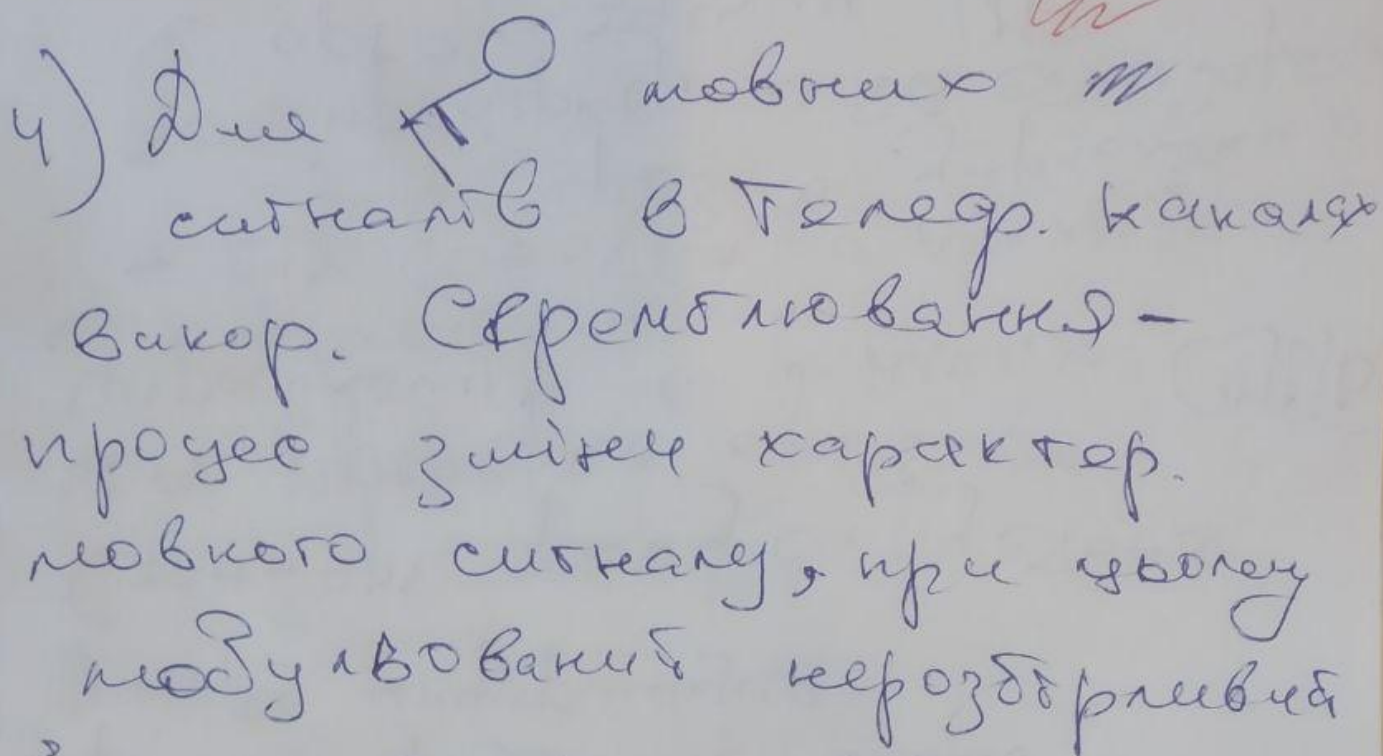 4) Для мовних
сигналів в Телеф. каналах
викор. Скремблювання -
процес зміни характер.
мовного сигналу, при цьому
модульований нерозбірливий